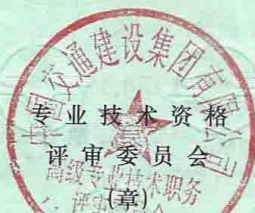 中国交通建设集团有限公司
专业技术资格
评审委员会
高级专业技术职务
评审委员会
(章)